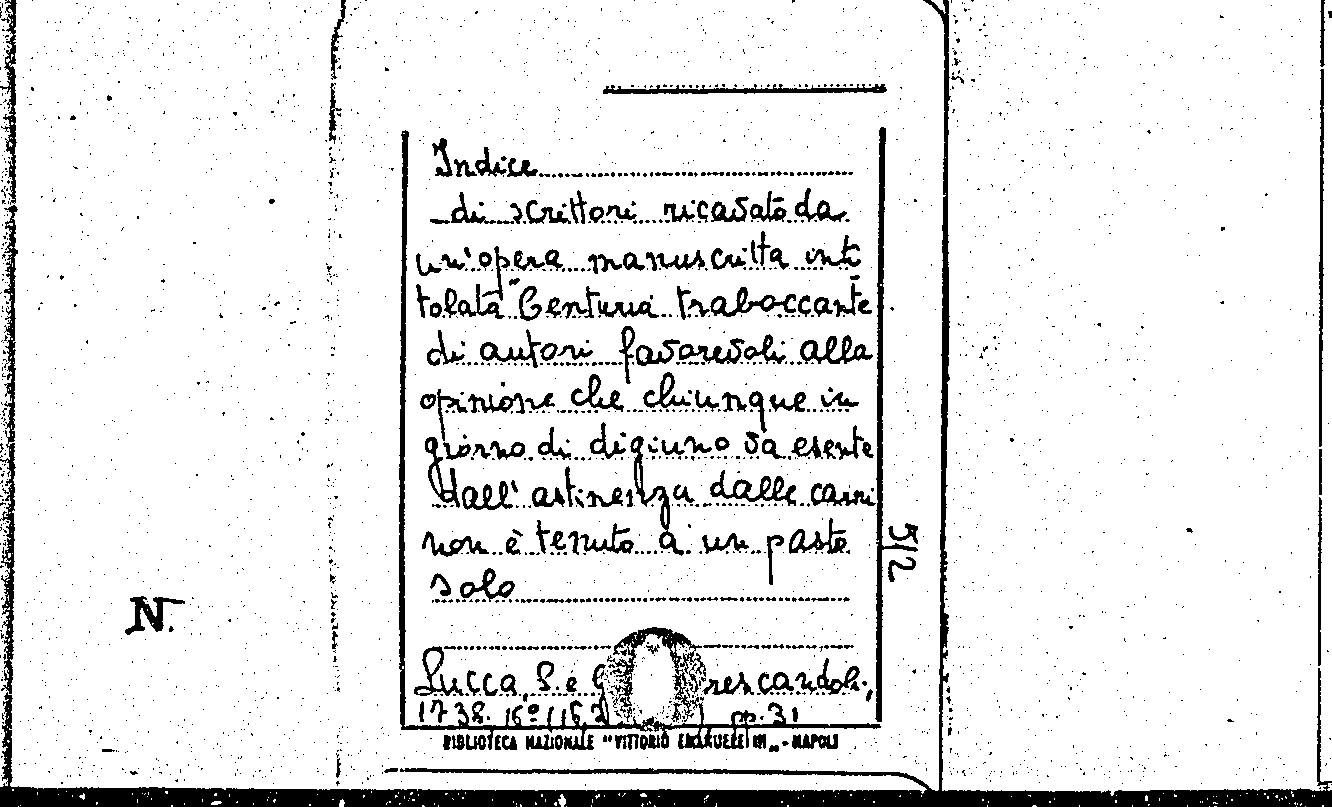 Indice
di scrittori ricavato da
un'opera manuscritta inti
tolata "Centuria traboccante
di autori favorevoli alla
opinione che chiunque in
giorno di digiuno va esente
dall'astinenza dalle carni
non è tenuto a un pasto
solo
5/2
N.
Lucca, S. e G rescandoli,
1738. 16º (16,2 ) pp. 31
BIBLIOTECA NAZIONALE "VITTORIO EMANUELE III„ - NAPOLI